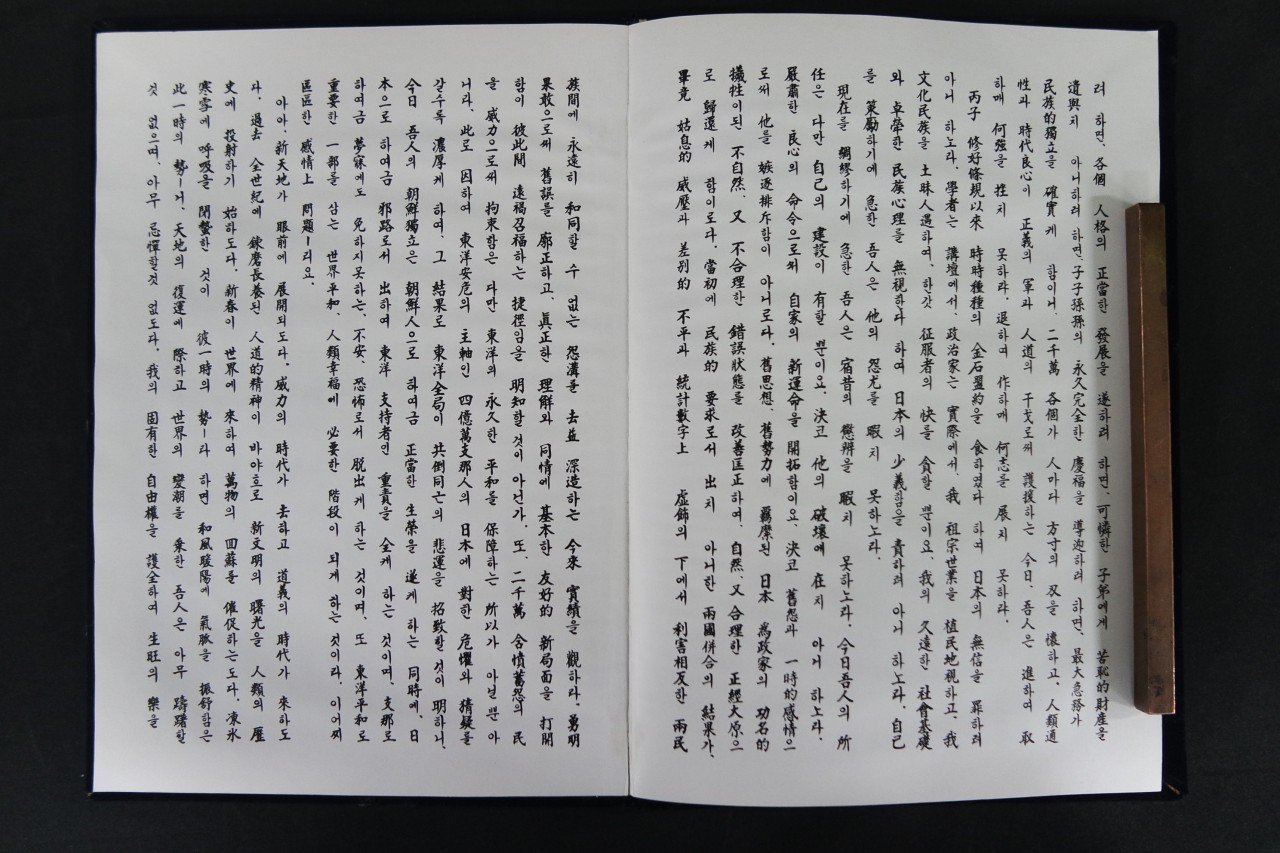 려 하면, 各個 人格의 正當한 發展을 遂하려 하면, 可憐한 子弟에게 苦恥的 財産을
遺與치 아니하려 하면, 子子孫孫의 永久完全한 慶福을 導迎하려 하면, 最大急務가
民族的 獨立을 確實케 함이니, 二千萬 各個가 人마다 方寸의 刃을 懷하고, 人類通
性과 時代良心이 正義의 軍과 人道의 干戈로써 護援하는 今日, 吾人은 進하여 取
하매 何强을 挫치 못하랴. 退하여 作하매 何志를 展치 못하랴.
丙子 修好條規以來 時時種種의 金石盟約을 食하였다 하여 日本의 無信을 罪하려
아니 하노라. 學者는 講壇에서, 政治家는 實際에서, 我 祖宗世業을 植民地視하고, 我
文化民族을 土昧人遇하여, 한갓 征服者의 快를 貪할 뿐이요, 我의 久遠한 社會基礎
와 卓犖한 民族心理를 無視한다 하여 日本의 少義함을 責하려 아니 하노라. 自己
를 策勵하기에 急한 吾人은 他의 怨尤를 暇치 못하노라.
現在를 綢繆하기에 急한 吾人은 宿昔의 懲辨을 暇치 못하노라. 今日 吾人의 所
任은 다만 自己의 建設이 有할 뿐이요, 決코 他의 破壞에 在치 아니 하노라.
嚴肅한 良心의 命令으로써 自家의 新運命을 開拓함이요, 決코 舊怨과 一時的 感情으
로써 他를 嫉逐排斥함이 아니로다. 舊思想, 舊勢力에 羈縻된 日本 爲政家의 功名的
犧牲이된 不自然, 又 不合理한 錯誤狀態를 改善匡正하여, 自然, 又 合理한 正經大原으
로 歸還케 함이로다. 當初에 民族的 要求로서 出치 아니한 兩國併合의 結果가,
畢竟 姑息的 威壓과 差別的 不平과 統計數字上 虛飾의 下에서 利害相反한 兩民
族間에 永遠히 和同할 수 없는 怨溝를 去益 深造하는 今來 實績을 觀하라. 勇明
果敢으로써 舊誤를 廓正하고, 眞正한 理解와 同情에 基本한 友好的 新局面을 打開
함이 彼此間 遠禍召福하는 捷徑임을 明知할 것이 아닌가. 또, 二千萬 含憤蓄怨의 民
을 威力으로써 拘束함은 다만 東洋의 永久한 平和를 保障하는 所以가 아닐 뿐 아
니라, 此로 因하여 東洋安危의 主軸인 四億萬支那人의 日本에 對한 危懼와 猜疑를
갈수록 濃厚케 하여, 그 結果로 東洋全局이 共倒同亡의 悲運을 招致할 것이 明하니,
今日 吾人의 朝鮮獨立은 朝鮮人으로 하여금 正當한 生榮을 遂케 하는 同時에, 日
本으로 하여금 邪路로서 出하여 東洋 支持者인 重責을 全케 하는 것이며, 支那로
하여금 夢寐에도 免하지못하는, 不安, 恐怖로서 脫出케 하는 것이며, 또 東洋平和로
重要한 一部를 삼는 世界平和, 人類幸福에 必要한 階段이 되게 하는 것이라. 이어찌
區區한 感情上 問題ㅣ리요.
아아, 新天地가 眼前에 展開되도다. 威力의 時代가 去하고 道義의 時代가 來하도
다. 過去 全世紀에 鍊磨長養된 人道的 精神이 바야흐로 新文明의 曙光을 人類의 歷
史에 投射하기 始하도다. 新春이 世界에 來하여 萬物의 回蘇를 催促하는도다. 凍氷
寒雪에 呼吸을 閉蟄한 것이 彼一時의 勢ㅣ라 하면 和風暖陽에 氣脈을 振舒함은
此一時의 勢ㅣ니, 天地의 復運에 際하고 世界의 變潮를 乘한 吾人은 아무 躊躇할
것 없으며, 아무 忌憚할것 없도다. 我의 固有한 自由權을 護全하여 生旺의 樂을